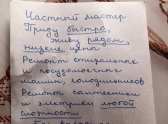 Частный мастер
Приду быстро,
живу рядом,
низкие цены
Ремонт стиральных
и посудомоечных
машин, холодильников
Ремонт сантехники
и электрики любой
сложности